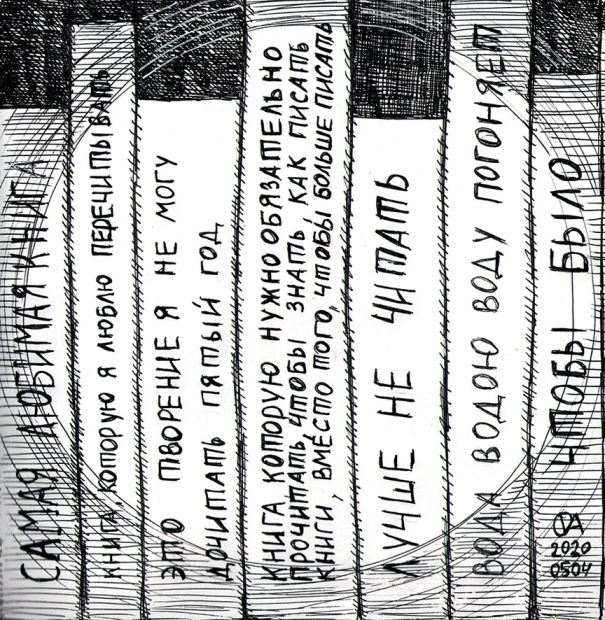 САМАЯ ЛЮБИМАЯ КНИГА
КНИГА, КОТОРУЮ Я ЛЮБЛЮ ПЕРЕЧИТЫВАТЬ
ЭТО ТВОРЕНИЕ Я НЕ МОГУ
ДОЧИТАТЬ ПЯТЫЙ ГОД
КНИГА КОТОРУЮ НУЖНО ОБЯЗАТЕЛЬНО
ПРОЧИТАТЬ, ЧТОБЫ ЗНАТЬ, КАК ПИСАТЬ
КНИГИ, ВМЕСТО ТОГО, ЧТОБЫ БОЛЬШЕ ПИСАТЬ
ЛУЧШЕ НЕ ЧИТАТЬ
ВОДА ВОДОЮ ВОДУ ПОГОНЯЕТ
ЧТОБЫ БЫЛО
2020
0504